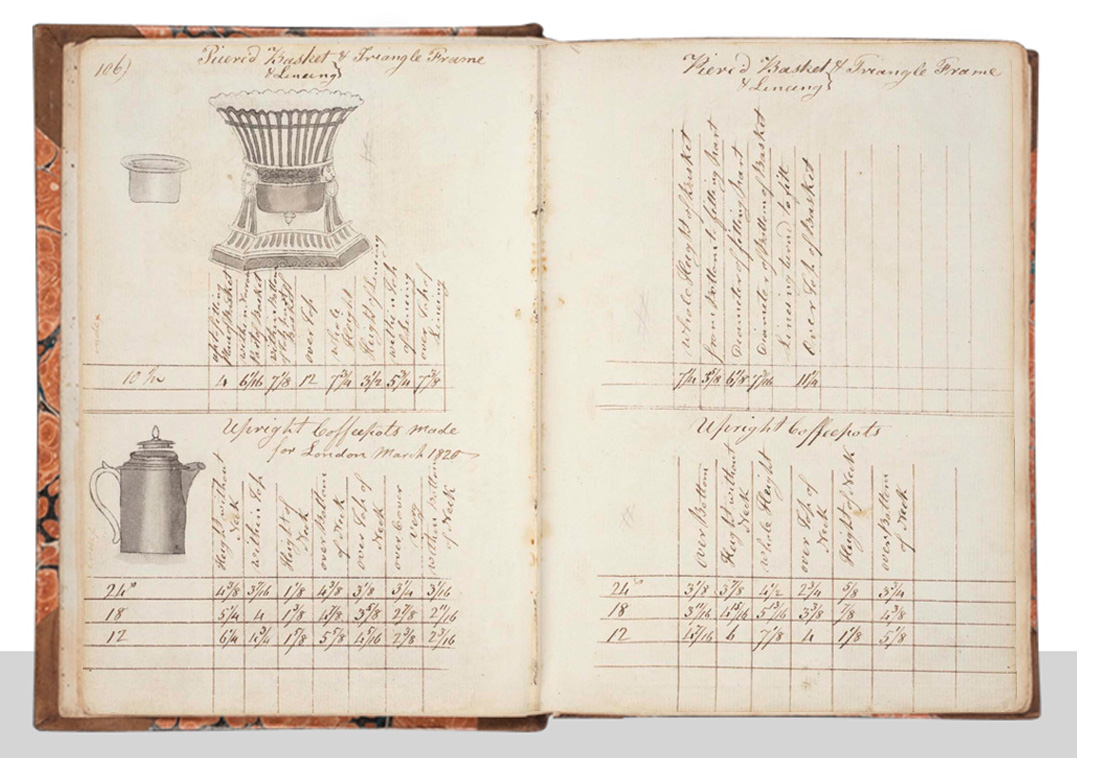 106)
Pierc'd Basket & Triangle Frame
& Lineing
within Top
of Lineing
over Top of
Lineing
over Top
whole
Height
Height of Lineing
10 In 4 6 1/16 7 1/8 12 7 3/4 3 1/2 5 3/4 7 3/8
Upright Coffeepots made
for London March 1820
Height without
Neck
within Top
Height of
Neck
over Bottom
of Neck
over Top of
Neck
over Cover
within Bottom
of Neck
24s 4 3/8 3 7/16 1 1/8 4 3/8 3 1/8 3 1/4
18 5 1/4 4 1 3/8 4 7/8 3 5/8 2 7/8 2 11/16
12 6 1/4 4 3/4 1 5/8 5 5/8 4 5/16 2 3/8 2 3/16
Pierc'd Basket & Triangle Frame
& Lineing
whole Height of Basket
from Bottom to fitting part
Diameter of fitting part
Diameter of Bottom of Basket
Lineing turn'd to fitt
Over Top of Basket
6 1/8 7 7/16 11 1/4
Upright Coffeepots
over Bottom
Height without
Neck
whole Height
over Top of
Neck
Height of Neck
over Bottom
of Neck
24s 3 1/8 3 7/8 4 1/2 2 3/4 5/8 3 3/4
18 3 11/16 4 15/16 5 13/16 3 3/8 7/8 4 3/8
12 4 7/16 6 7 1/8 4 1 1/8 5 1/8